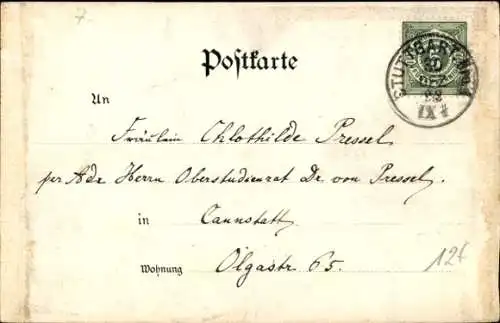 7
Postkarte
STUTTGART
An
Fräulein Chlothilde Pressel
per Adr Herrn Oberstudienrat Dr. von Pressel,
in
Cannstatt
Wohnung Olgastr 65.